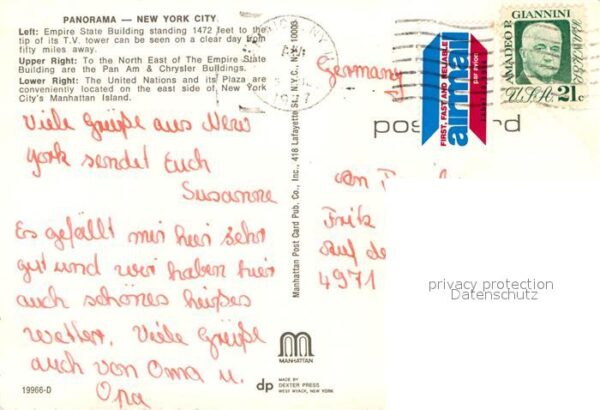 PANORAMA — NEW YORK CITY.
Left: Empire State Building standing 1472 feet to the
tip of its T.V. tower can be seen on a clear day from
fifty miles away.
Upper Right: To the North East of The Empire State
Building are the Pan Am & Chrysler Buildings.
Lower Right: The United Nations and its Plaza are
conveniently located on the east side of New York
City's Manhattan Island.
Viele Grüße aus New
York sendet Euch
Susanne
Es gefällt mir hier sehr
gut und wir haben hier
auch schönes heißes
Wetter. Viele Grüße
auch von Oma u.
Opa
19966-D
MANHATTAN
dp
MADE BY
DEXTER PRESS
WEST NYACK, NEW YORK
Manhattan Post Card Pub. Co., Inc., 418 Lafayette St., N.Y.C., N.Y. 10003
Germany
FIRST, FAST AND RELIABLE
airmail
AMADEO P. GIANNINI
U.S.A. 21c
An
Fritz
Auf de
4971
privacy protection
Datenschutz